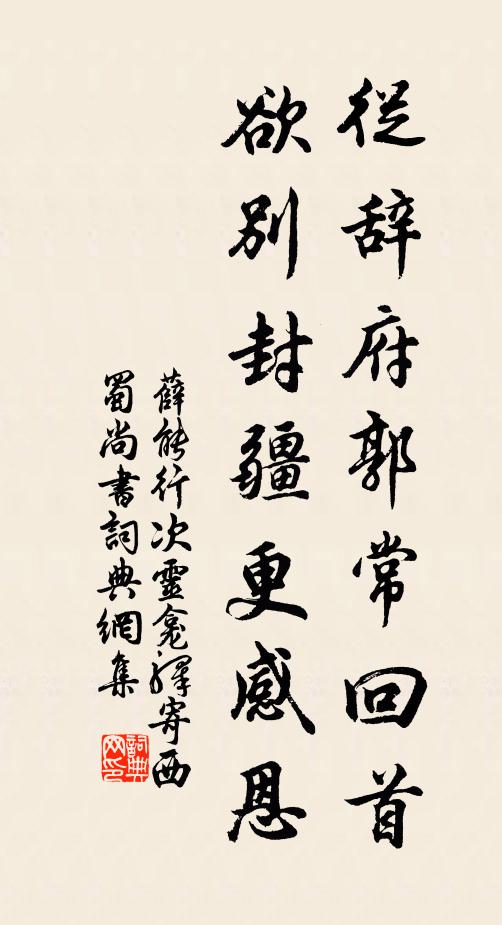 從辭府郭常回首
欲別封疆更感恩
薛能行次靈龕驛寄西
蜀尚書詞典網集
詞典
网印